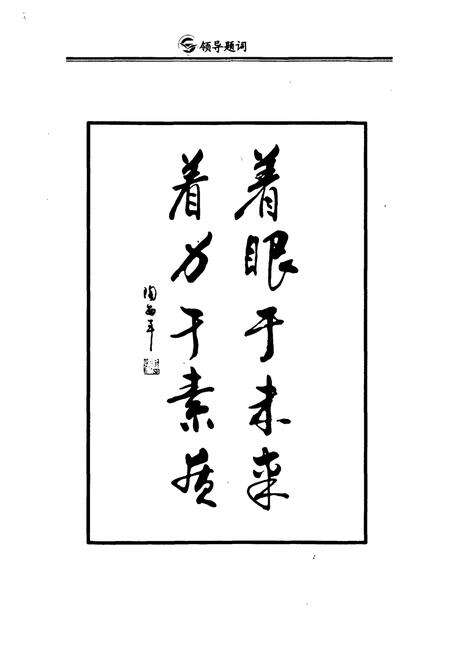 领导题词
着眼于未来
着力于素质